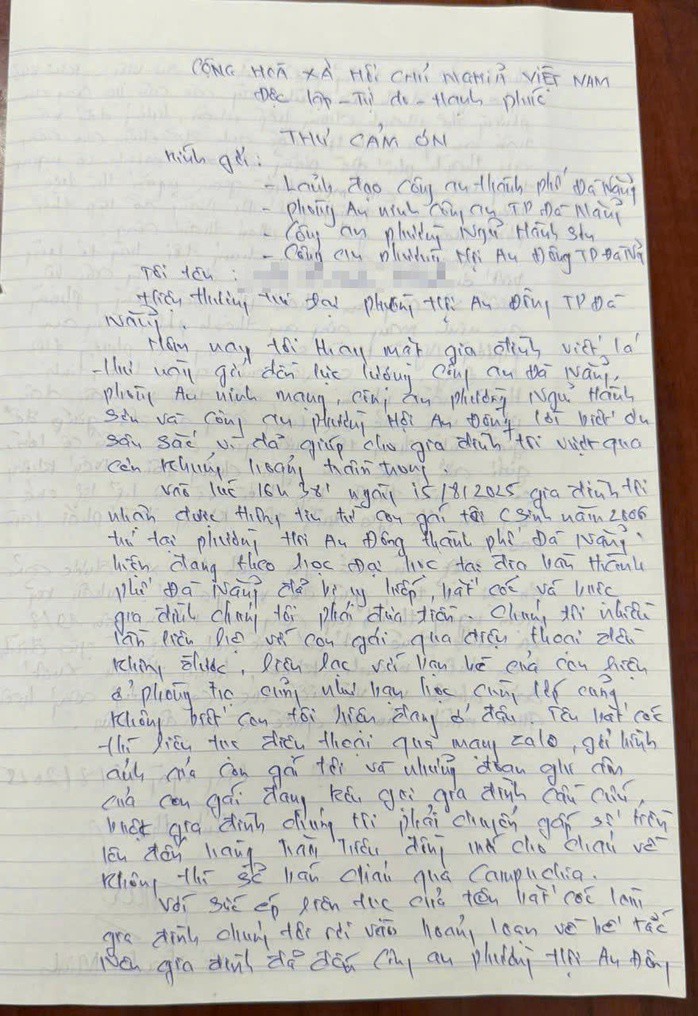 CỘNG HOÀ XÃ HỘI CHỦ NGHĨA VIỆT NAM
Độc lập - Tự do - Hạnh phúc
THƯ CẢM ƠN
Kính gởi :
- Lãnh đạo công an thành phố Đà Nẵng
- phòng An ninh Công an TP Đà Nẵng
- Công an phường Ngũ Hành Sơn
- Công an phường Hội An Đông TP Đà Nẵ
Tôi tên :
Hiện thường trú tại phường Hội An Đông TP Đà
Nẵng.
Hôm nay tôi thay mặt gia đình viết lá
thư này gởi đến lực lượng Công an Đà Nẵng,
phòng An ninh mạng, công an phường Ngũ Hành
Sơn và công an phường Hội An Đông lời biết ơn
sâu sắc vì đã giúp cho gia đình tôi vượt qua
cơn khủng hoảng trầm trọng.
vào lúc 16h 38' ngày 15/8/2025 gia đình tôi
nhận được thông tin từ con gái tôi (sinh năm 2006
trú tại phường Hội An Đông thành phố Đà Nẵng.
hiện đang theo học Đại học tại địa bàn thành
phố Đà Nẵng đã bị uy hiếp, bắt cóc và buộc
gia đình chúng tôi phải đưa tiền. Chúng tôi nhiều
lần liên hệ với con gái qua điện thoại đều
không được, liên lạc với bạn bè của con hiện
ở phòng trọ cũng như bạn học cùng lớp cũng
không biết con tôi hiện đang ở đâu. Tên bắt cóc
thì liên tục điện thoại qua mạng zalo, gởi hình
ảnh của con gái tôi và những đoạn ghi âm
của con gái đang kêu gọi gia đình cầu cứu,
buộc gia đình chúng tôi phải chuyển gấp số tiền
lên đến hàng trăm triệu đồng mới cho cháu về
không thì sẽ bán cháu qua Campuchia.
Với sức ép liên tục của tên bắt cóc làm
gia đình chúng tôi rơi vào hoảng loạn và bế tắc
nên gia đình đã đến Công an phường Hội An Đông